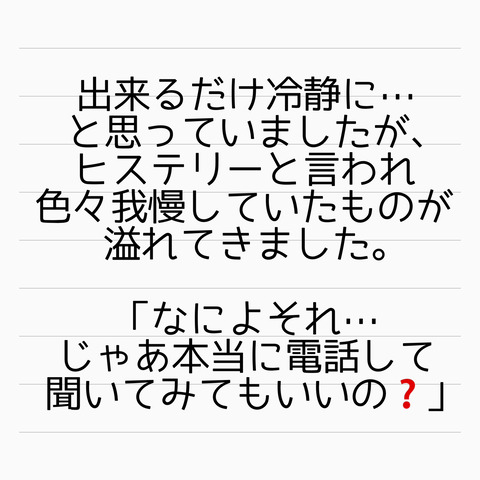 出来るだけ冷静に…
と思っていましたが、
ヒステリーと言われ
色々我慢していたものが
溢れてきました。
「なによそれ…
じゃあ本当に電話して
聞いてみてもいいの❓」